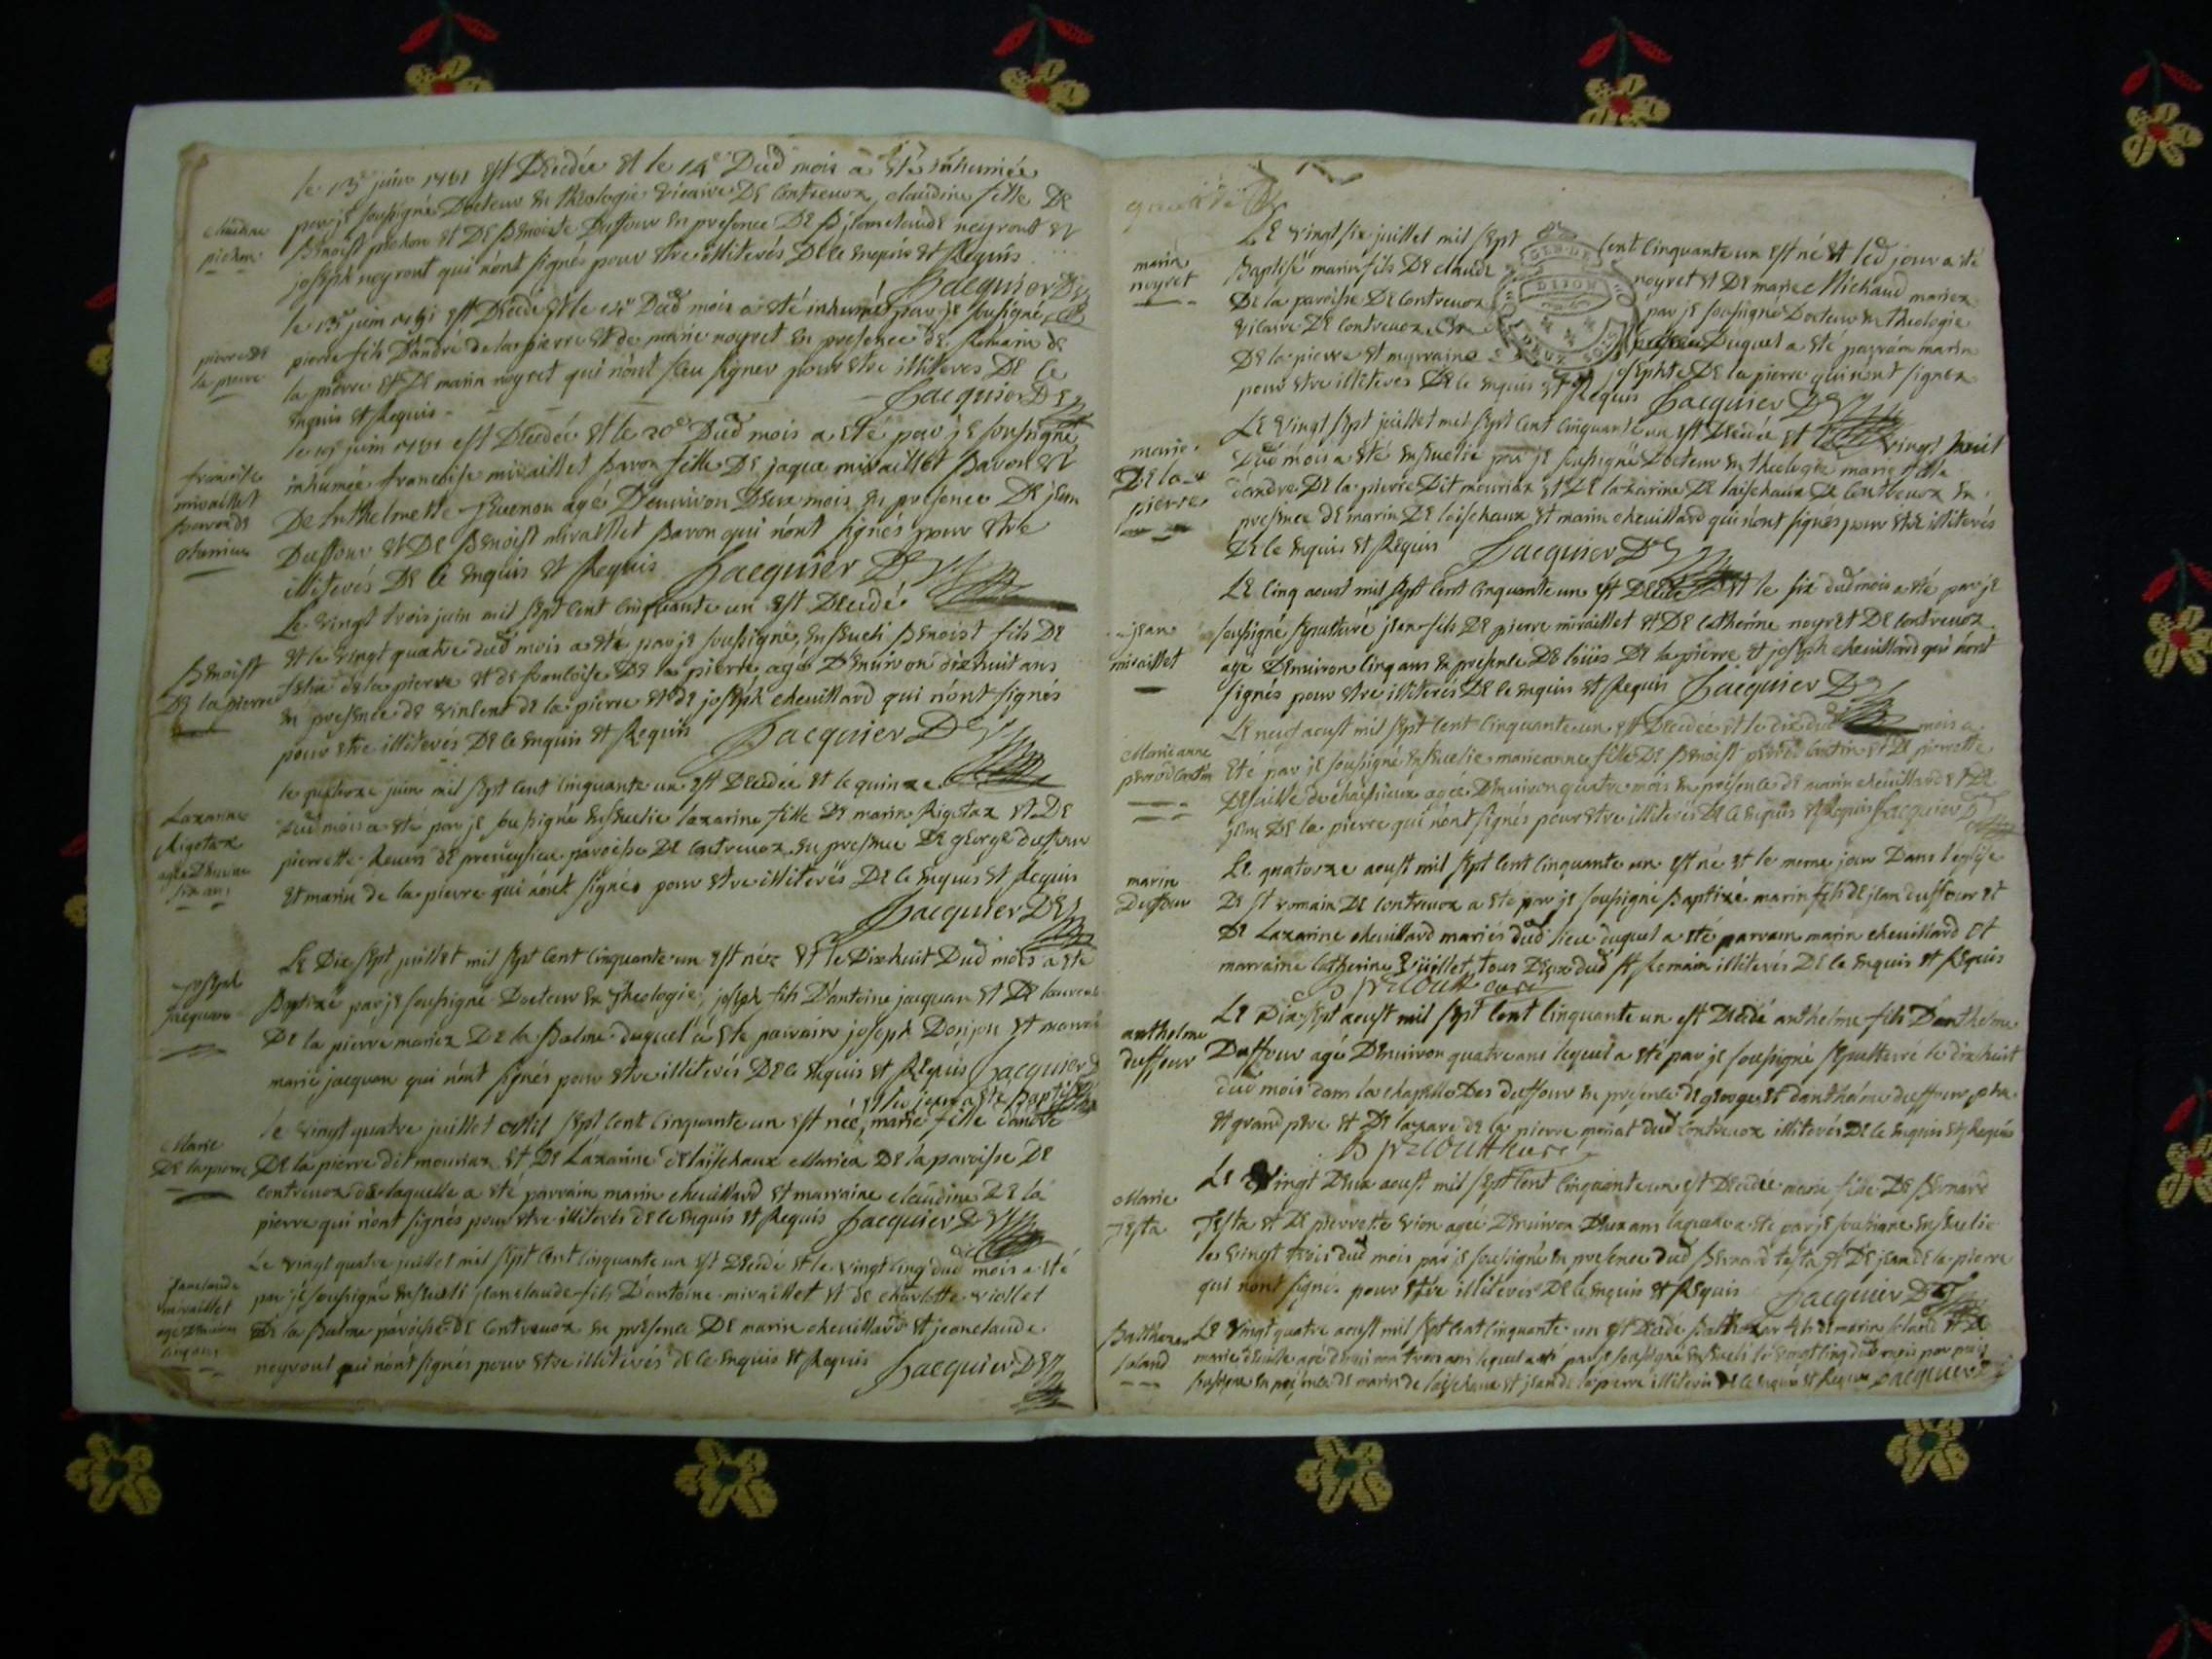 le 13e juin 1751 est Decedée et le 14e Dud mois a été inhumée
par je soussigné Docteur en theologie vicaire De Contrevoz, claudine fille De
claudine
pichon
Benoist pichon et De Benoite Duffour en presence De jeanclaude neyrout et
joseph neyrout qui n'ont signés pour etre illiterés De ce enquis et Requis
Jacquier D
le 13e juin 1751 est Decedé et le Dud mois a été inhumé par je soussigné
pierre De
la pierre
pierre fils D'andré de la pierre et de marie noyret en presence de Romain de
la pierre et De marin noyret qui n'ont sceu signer pour etre illiteres De ce
enquis et Requis
Jacquier D
le juin 1751 est Decedée et le 20e Dud mois a été par je soussigné
francoise
miraillet
baron De
inhumée francoise miraillet baron fille De jaque miraillet baron et
De anthelmette agé D'environ Deux mois en presence De jean
Duffour et De Benoist miraillet baron qui n'ont signés pour etre
illiterés De ce enquis et Requis Jacquier D
Le vingt trois juin mil sept cent cinquante un est Decedé
Benoist
De la pierre
et le vingt quatre dud mois a été par je soussigné, enseveli Benoist fils De
de la pierre et de francoise De la pierre agé D'environ dixhuit ans
en presence de vincent de la pierre et de joseph chevillard qui n'ont signés
pour etre illiterés De ce enquis et Requis Jacquier D
le quatorze juin mil sept cent cinquante un est Decedée et le quinze
Lazarine
Rigotaz
agée D'environ
six ans
dud mois a été par je soussigné ensevelie lazarine fille De marin Rigotaz et De
pierrette de paroisse De Contrevoz en presence De george duffour
et marin de la pierre qui n'ont signés pour etre illiterés De ce enquis et Requis
Jacquier D
Le Dix sept juillet mil sept cent cinquante un est né et le Dixhuit Dud mois a été
joseph
jacquan
Baptizé par je soussigné Docteur en Theologie, joseph fils D'antoine jacquan et De
De la pierre mariez De la Balme duquel a été parrain joseph Donjon et
marie jacquan qui n'ont signés pour etre illiterés De ce enquis et Requis Jacquier D
et led jour a été baptisée
Le vingt quatre juillet mil sept cent cinquante un est née, marie fille d'andré
Marie
De la pierre
De la pierre dit mouriaz et De Lazarine delaischaux Mariez De la paroisse De
contrevoz de laquelle a été parrain marin chevillard et marraine claudine De la
pierre qui n'ont signés pour etre illiterés de ce enquis et Requis Jacquier D
Le vingt quatre juillet mil sept cent cinquante un est Decedé et le vingt cinq dud mois a été
jeanclaude
miraillet
agé D'environ
cinq ans
par je soussigné enseveli jeanclaude fils D'antoine miraillet et de charlotte viollet
De la Balme paroisse De Contrevoz en presence De marin chevillard et jeanclaude
neyrout qui n'ont signés pour etre illiterés de ce enquis et Requis Jacquier D
Le vingt six juillet mil sept cent cinquante un est né et led jour a été
marin
noyret
Baptisé marin fils De claude noyret et De marie Michaud mariez
De la paroisse De Contrevoz par je soussigné Docteur en theologie
vicaire De Contrevoz Duquel a été parrain marin
De la pierre et marraine josephte De la pierre qui n'ont signez
pour etre illiteres De ce enquis et Requis Jacquier D
GEN DE
DIJON
DEUX SOLS
Le vingt sept juillet mil sept cent cinquante un est Decedée et vingt huit
marie
De la
pierre
Dud mois a été ensevelie par je soussigné Docteur en theologie marie fille
d'andré De la pierre Dit mouriaz et De lazarine De laischaux De Contrevoz en
presence de marin De laischaux et marin chevillard qui n'ont signés pour etre illiterés
De ce enquis et Requis Jacquier D
Le cinq aoust mil sept cent cinquante un est Decedé et le six dud mois a été par je
jean
miraillet
soussigné sepulturé jean fils De pierre miraillet et De catherine noyret De contrevoz
agé D'environ cinq ans en presence De loüis De la pierre et joseph chevillard qui n'ont
signés pour etre illiterés De ce enquis et Requis Jacquier D
Le neuf aoust mil sept cent cinquante un est Decedée et le dix dud mois a
Marieanne
été par je soussigné ensevelie marieanne fille De Benoist et De pierrette
agée D'environ quatre mois en presence de marin chevillard et De
jean De la pierre qui n'ont signés pour etre illiterés De ce enquis et Requis Jacquier D
Le quatorze aoust mil sept cent cinquante un est né et le meme jour Dans l'eglise
marin
Duffour
De st romain De contrevoz a été par je soussigné Baptizé marin fils de jean duffour et
De Lazarine chevillard mariés dud lieu duquel a été parrain marin chevillard et
marraine catherine tous Deux dud st Romain illiterés De ce enquis et Requis
curé
Le Dix sept aoust mil sept cent cinquante un est Decedé anthelme fils D'anthelme
anthelme
duffour
Duffour agé D'environ quatre ans lequel a été par je soussigné sepulturé le dixhuit
dud mois dans la chapelle Des duffour en presence de george et d'anthelme duffour pere
et grand pere et De lazare de la pierre dud Contrevoz illiterés De ce enquis et Requis
curé
Le vingt Deux aoust mil sept cent cinquante un est Decedée marie fille De Bernard
Marie
Testa
Testa et De pierrette vion agée D'environ Deux ans laquelle a été par je soussigné ensevelie
le vingt trois dud mois par je soussigné en presence dud Bernard testa et De jean de la pierre
qui n'ont signé pour etre illiterés De ce enquis et Requis Jacquier D
Balthazar
Le vingt quatre aoust mil sept cent cinquante un est Decedé Balthazar fils De marin et De
marie agé D'environ trois ans lequel a été par je soussigné enseveli le vingt cinq dud mois
en presence De marin de laischaux et jean de la pierre illiterés De ce enquis et Requis Jacquier